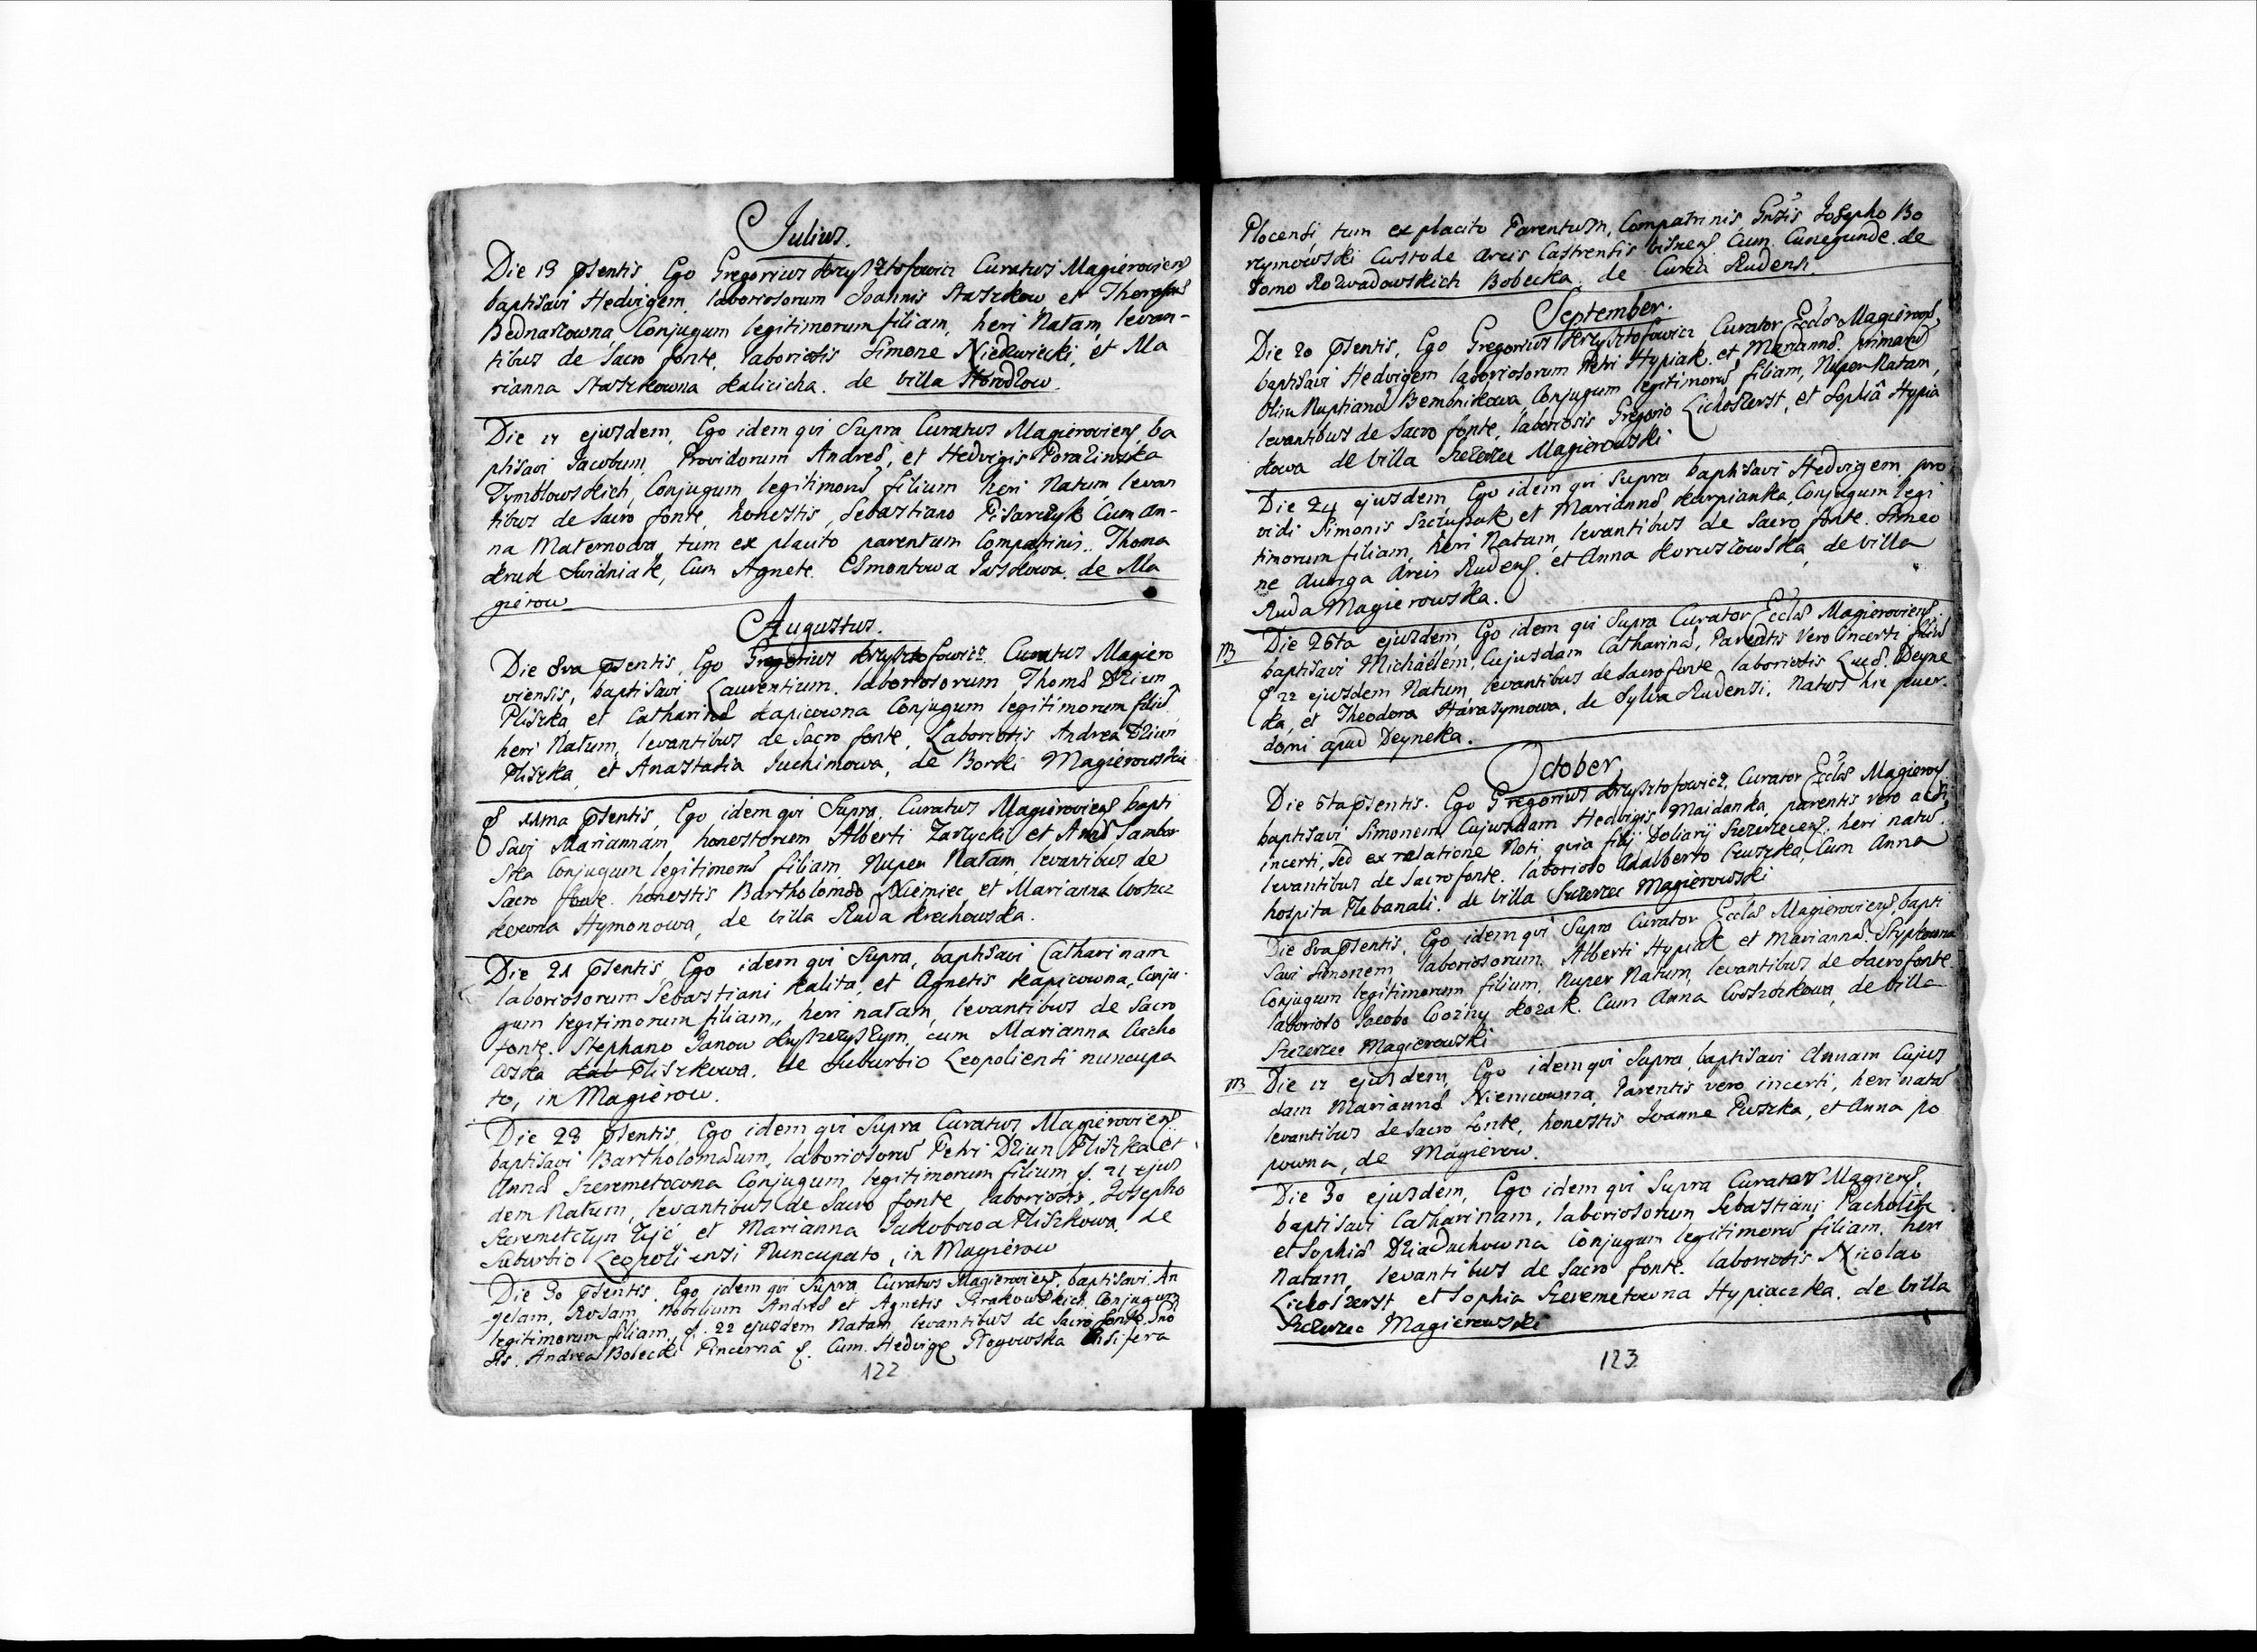 Julius.
Die 19 psentis Ego Gregorius Krzysztofowicz Curatus Magieroviens
baptisavi Hedvigem, laboriosorum Joannis Staszkow et Theresiæ
Bednarzowna Conjugum legitimorum filiam, heri Natam, levan-
tibus de Sacro fonte, laboriosis Simone Niedzwiecki, et Ma
rianna Staszkowna Kalicicha. de villa
Die 17 ejusdem, Ego idem qui Supra Curatus Magieroviens, ba
ptisavi Jacobum, Providorum Andreæ, et Hedvigis Porazinska
Conjugum legitimorũ filium heri Natum levan
tibus de Sacro fonte, honestis, Sebastiano Pisarczyk Cum An-
na Maternowa tum ex placito parentum Compatrinis.. Thoma
Kruk Swidniak, Cum Agnete. Esmontowa Jaskowa. de Ma
gierow
Augustus.
Die 8va psentis, Ego Gregorius Krzysztofowicz Curatus Magiero
viensis, baptisavi Laurentium. laboriosorum Thomæ Dziun
Pliszka et Catharinæ Kapicowna Conjugum legitimorum filiũ,
heri Natum, levantibus de Sacro fonte, Laboriosis Andrea Dziun
Pliszka, et Anastasia Juchimowa, de Borki Magierowskie
11ma psentis, Ego idem qui Supra. Curatus Magieroviens bapti
savi Mariannam honestorum Alberti Zarzycki et Annæ Sambor
ska Conjugum legitimorũ filiam Nuper Natam, levantibus de
Sacro fonte. honestis Bartholomæo Niemiec et Marianna
Hymonowa, de villa Ruda Krechowska.
Die 21 psentis, Ego idem qui Supra, baptisavi Catharinam
laboriosorum Sebastiani Kalita, et Agnetis Kapicowna, Conju-
gum legitimorum filiam,, heri natam, levantibus de Sacro
fonte. Stephano Janow cum Marianna
Pliszkowa. de Suburbio Leopoliensi nuncupa
to, in Magierow.
Die 23 psentis, Ego idem qui Supra Curatus Magieroviens.
baptisavi Bartholomæum, laboriosorũ Petri Dziun Pliszka et
Annæ Szeremetowna Conjugum, legitimorum filium, 21 ejus
dem Natum, levantibus de Sacro fonte laboriosis. Josepho
Szeremetczyn Zyć, et Marianna Jakobowa Pliszkowa, de
Suburbio Leopoliensi Nuncupato, in Magierow
Die 30 psentis. Ego idem qui Supra Curatus Magieroviens. baptisavi. An
gelam, Rosam, Nobilium Andreæ et Agnetis Conjugum
legitimorum filiam, 22 ejusdem Natam levantibus de Sacro fonte.
Andrea Bobecki Pincerna Cum. Hedvige Ensifera
122
Plocensi tum ex placito Parentum, Compatrinis Josepho Bo
rzymowski Custode Arcis Castrensis Cum Cunegunde. de
Domo Rozwadowskich Bobecka, de Curia Rudensi.
September.
Die 20 psentis, Ego Gregorius Krzysztofowicz Curator Ecclæ Magierovs,
baptisavi Hedvigem laboriosorum Petri Hypiak. et Mariannæ. primariũ
Olim Nuptianũ Bembnikowa Conjugum legitimorũ filiam, Nuper Natam,
levantibus de Sacro fonte, laboriosis Gregorio Lichoszerst, et Sophiâ Hypia
kowa de villa Szczerzec Magierowski
Die 24 ejusdem, Ego idem qui Supra baptisavi Hedvigem, pro
vidi Simonis Szczupak et Mariannæ Karpianka, Conjugum legi
timorum filiam, heri Natam, levantibus de Sacro fonte. Simeo
ne Auriga Arcis Rudens. et Anna de villa
Ruda Magierowska.
Die 26ta ejusdem, Ego idem qui Supra Curator Ecclæ Magieroviens.
baptisavi Michaelem, Cujusdam Catharinæ, Parentis Vero incerti filiũ
22 ejusdem Natum, levantibus de Sacro fonte laboriosis Lucæ. Deyne
ka, et Theodora Harasymowa, de Sylva Rudensi. Natus hic puer.
domi apud Deyneka.
October
Die 6ta psentis. Ego Gregorius Krzysztofowicz, Curator Ecclæ Magierovs.
baptisavi Simonem, Cujusdam Hedvigis Maidanka, parentis vero
incerti, sed ex relatione Noti, quia filij Doliarij Szczerzecens. heri natũ.
levantibus de Sacro fonte. laborioso Adalberto Czuszka, Cum Anna
hospita Plebanali. de villa Szczerzec Magierowski
Die 8va psentis, Ego idem qui Supra Curator Ecclæ Magieroviens, bapti
savi Simonem, laboriosorum. Alberti Hypiak et Mariannæ. Stypkowna
Conjugum legitimorum filium, Nuper Natum, levantibus de Sacro fonte.
laborioso Jacobo Kozak. Cum Anna de villa
Szczerzec Magierowski
Die 17 ejusdem, Ego idem qui Supra, baptisavi Annam Cujus
dam Mariannæ Niemcowna, Parentis vero, incerti, heri natã
levantibus de Sacro fonte, honestis Joanne Puszka, et Anna po
powna, de Magierow.
Die 30 ejusdem, Ego idem qui Supra Curator Magiers.
baptisavi Catharinam, laboriosorum Sebastiani Pacholik
et Sophiæ Dziaduchowna Conjugum legitimorũ filiam, heri
Natam, levantibus de Sacro fonte. laboriosis Nicolao
Lichoszerst, et Sophia Szeremetowna Hypiaczka. de villa
Szczerzec Magierowski
123